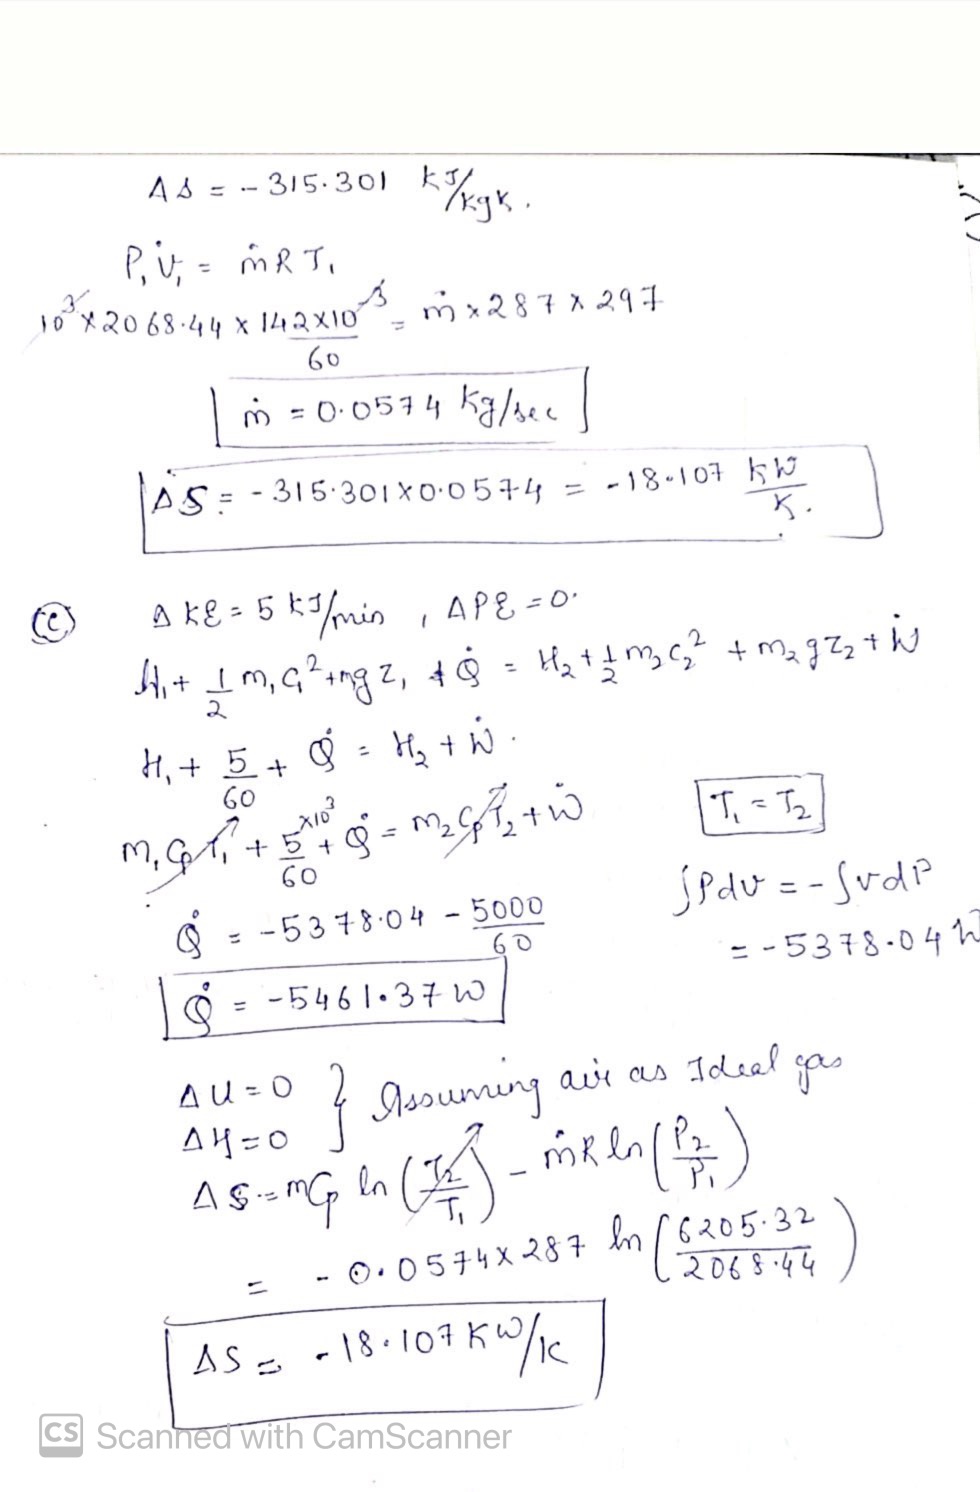 Δs = - 315.301 kJ/kgK.
P₁V̇₁ = ṁRT₁
10³ × 2068.44 × 142×10⁻³/60 = ṁ × 287 × 297
ṁ = 0.0574 kg/sec
ΔṠ = - 315.301×0.0574 = -18.107 kW/K.
(c) ΔKE = 5 kJ/min , ΔPE = 0.
H₁ + 1/2 m₁C₁² + mgz₁ + Q̇ = H₂ + 1/2 m₂C₂² + m₂gz₂ + Ẇ
H₁ + 5/60 + Q̇ = H₂ + Ẇ.
m₁CpT₁ + 5×10³/60 + Q̇ = m₂CpT₂ + Ẇ
T₁ = T₂
∫Pdv = -∫vdP
= -5378.04 W
Q̇ = -5378.04 - 5000/60
Q̇ = -5461.37 W
ΔU = 0
ΔH = 0 } Assuming air as Ideal gas
ΔS = mCp ln(T₂/T₁) - ṁR ln(P₂/P₁)
= - 0.0574×287 ln(6205.32/2068.44)
ΔS = -18.107 KW/K
CS Scanned with CamScanner